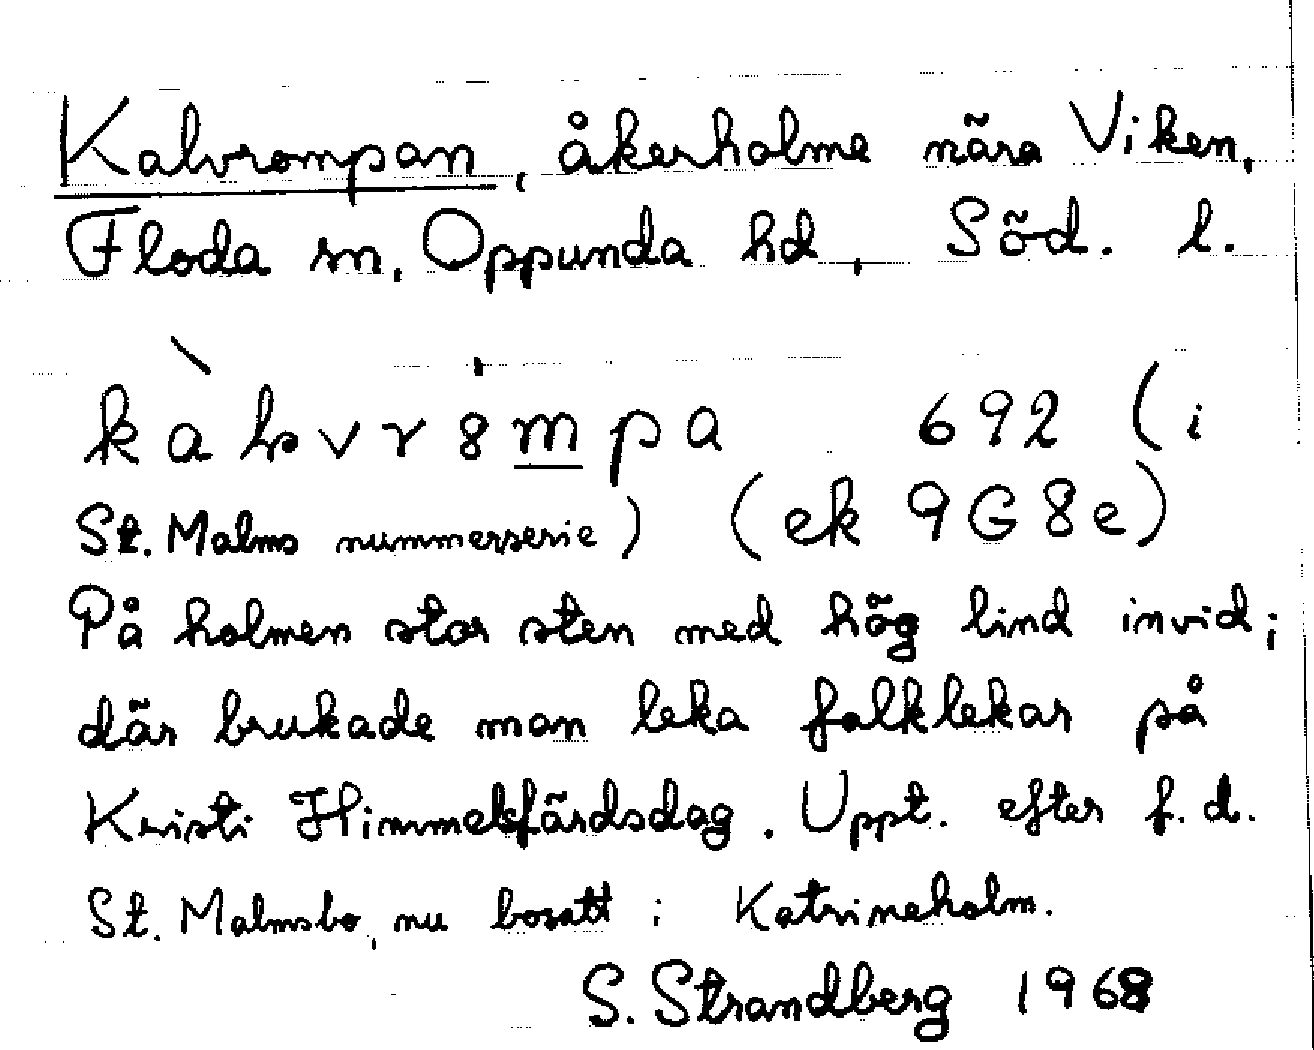 Kalvrompan, åkerholme nära Viken,
Floda sn, Oppunda hd, Söd. l.
692 (i
St. Malms nummerserie) (ek 9G8e)
På holmen stor sten med hög lind invid;
där brukade man leka folklekar på
Kristi Himmelsfärdsdag. Uppt. efter f.d.
St. Malmsbo, nu bosatt i Katrineholm.
S. Strandberg 1968